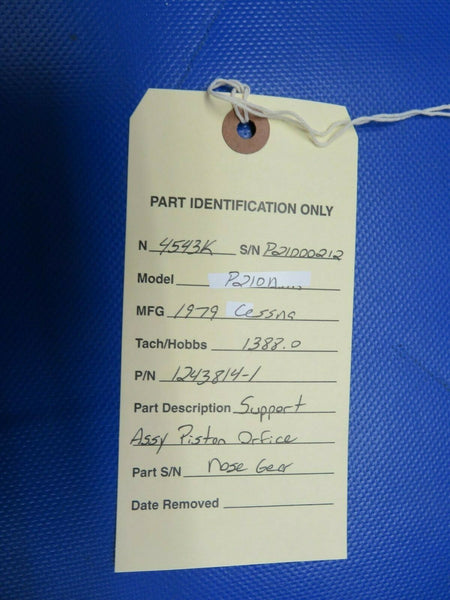 PART IDENTIFICATION ONLY
N 4543K S/N P21000212
Model P210N
MFG 1979 Cessna
Tach/Hobbs 1388.0
P/N 1243814-1
Part Description Support
Assy Piston Orfice
Part S/N Nose Gear
Date Removed